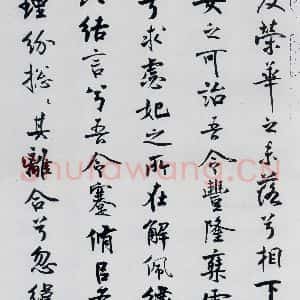 及榮華之未落兮相下
女之可詒吾令豐隆椉雲
兮求虙妃之所在解佩纕
以結言兮吾令蹇脩㠯為
理紛総〻其離合兮忽緯
shufawang.CN